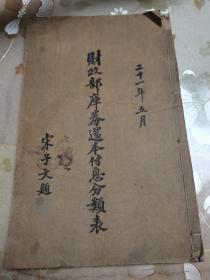 二十一年五月
財政部庫券還本付息分類表
宋子文題